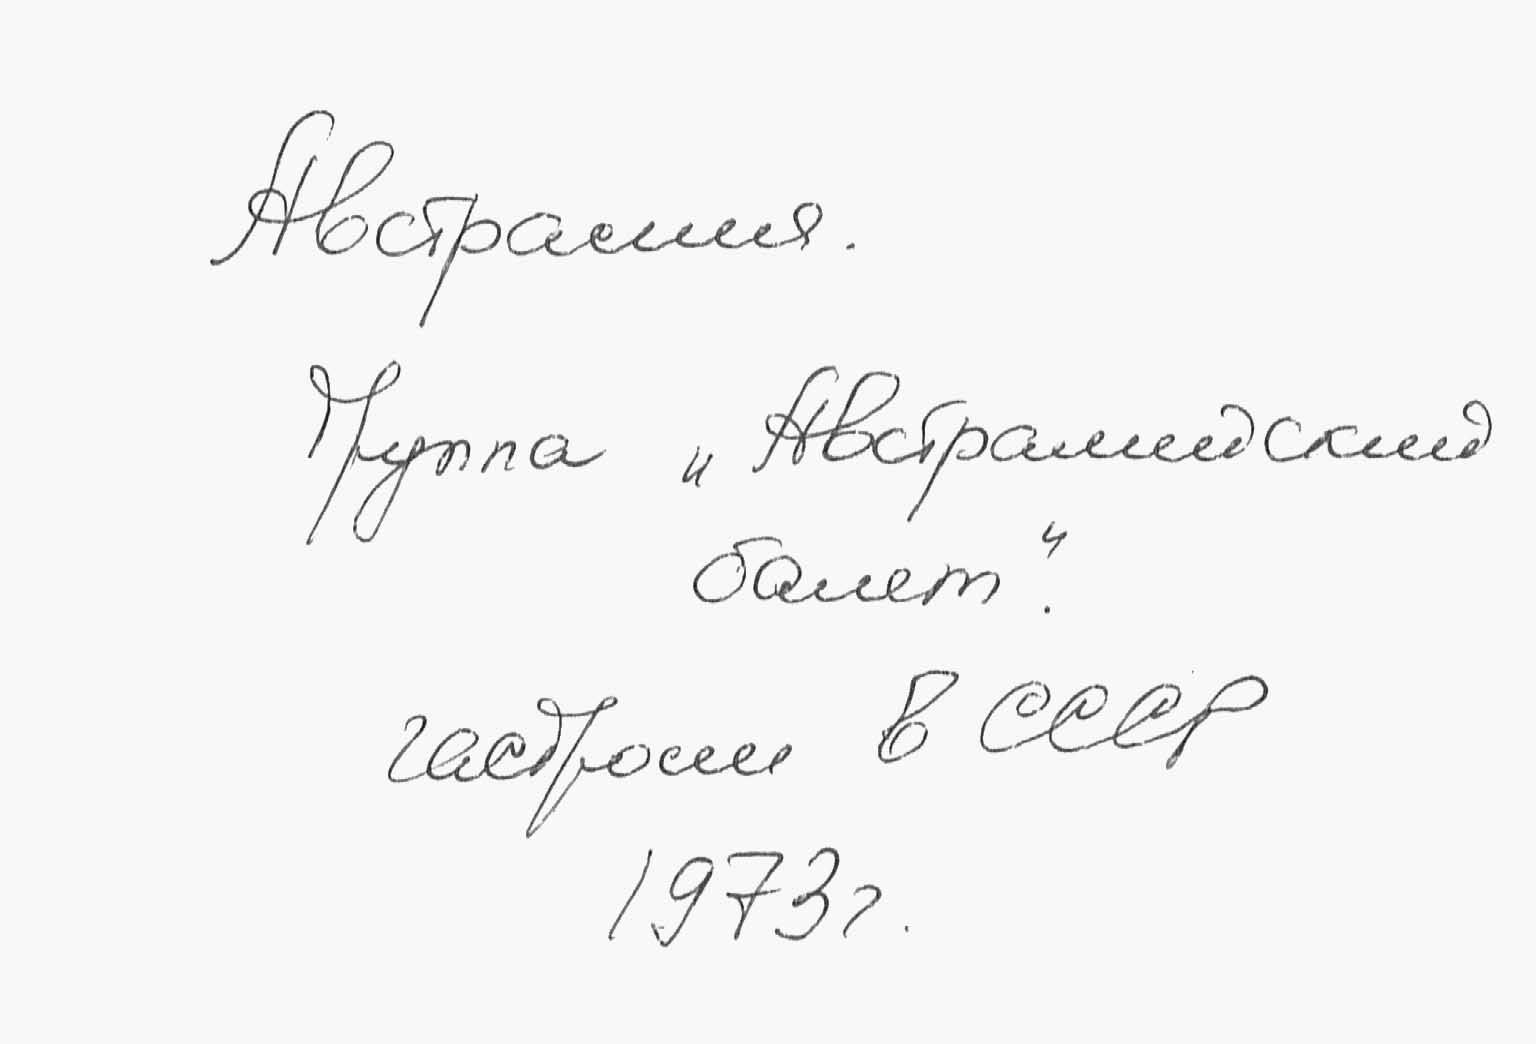 Австралия.
Труппа „Австралийский
балет".
гастроли в СССР
1973г.